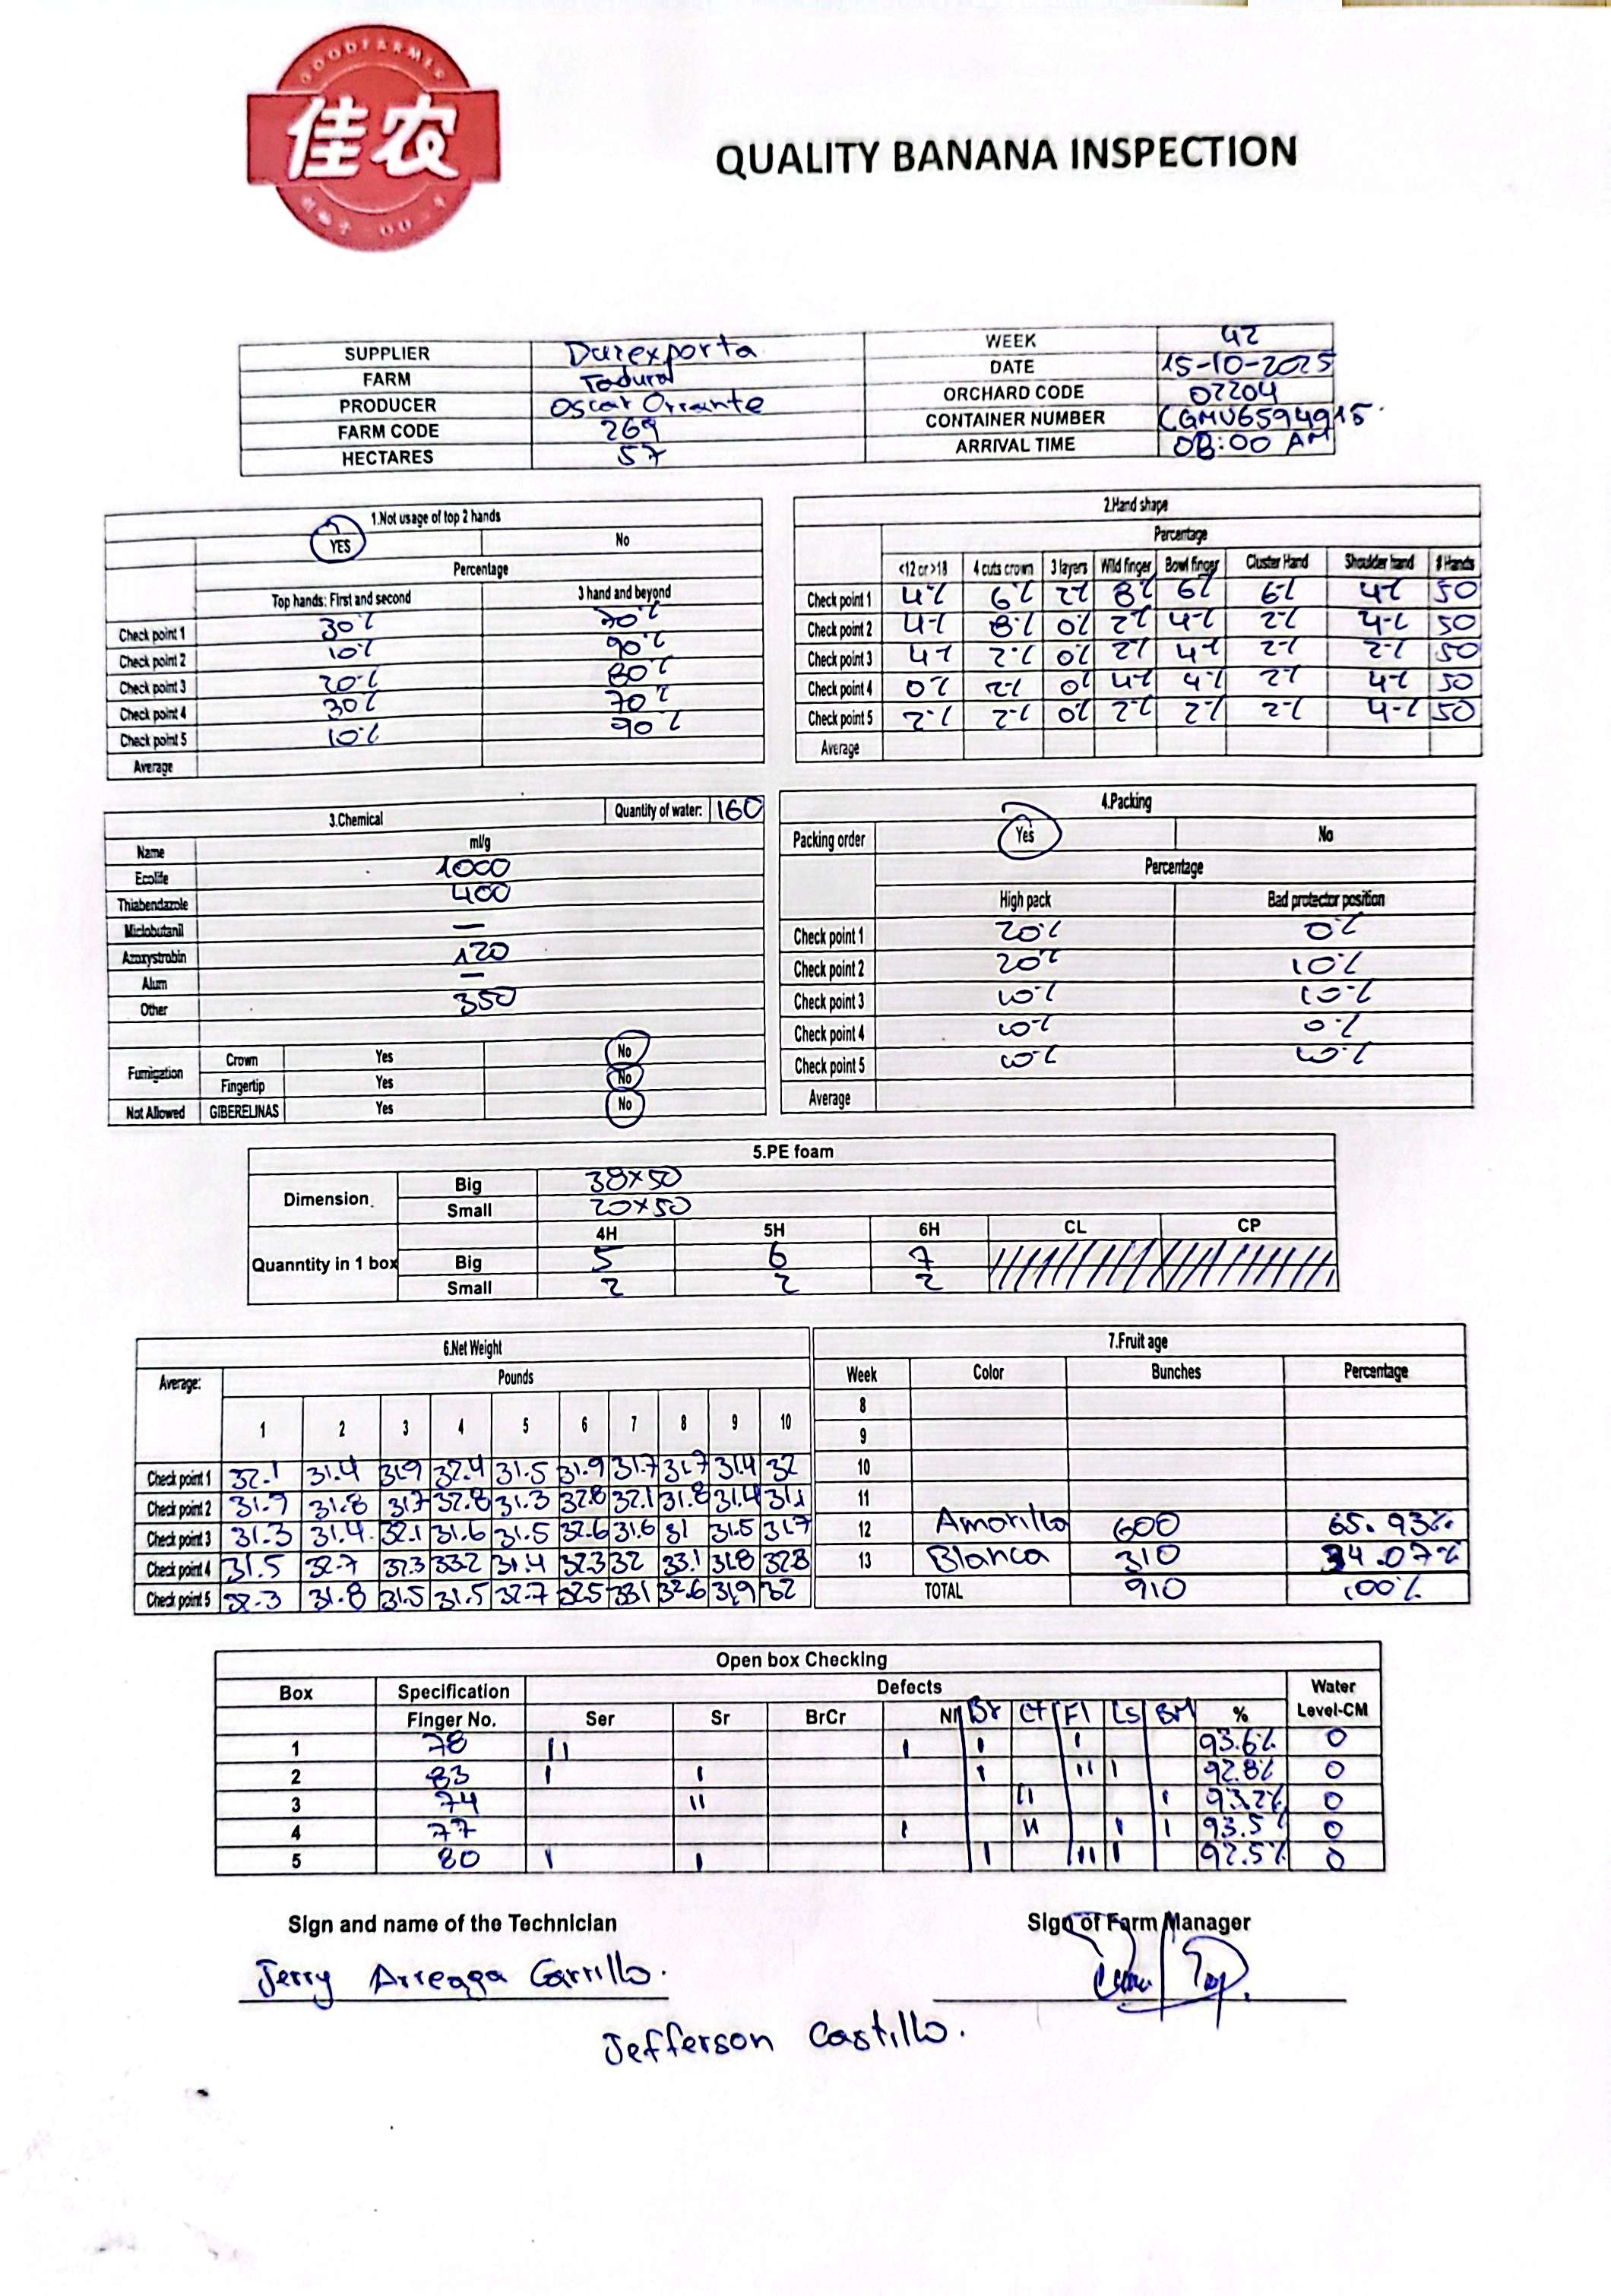 GOODFARMER
佳农
QUALITY BANANA INSPECTION
SUPPLIER Durexporta WEEK 42
FARM Tadural DATE 15-10-2025
PRODUCER Oscar Orrante ORCHARD CODE 02204
FARM CODE 269 CONTAINER NUMBER CGMU6594915.
HECTARES 57 ARRIVAL TIME 08:00 AM
1.Not usage of top 2 hands
YES No
Percentage
Top hands: First and second 3 hand and beyond
Check point 1 30% 70%
Check point 2 10% 90%
Check point 3 20% 80%
Check point 4 30% 70%
Check point 5 10% 90%
Average
2.Hand shape
Percentage
<12 or >18 4 cuts crown 3 layers Wild finger Bowl finger Cluster Hand Shoulder hand # Hands
Check point 1 4% 6% 2% 8% 6% 6% 4% 50
Check point 2 4% 8% 0% 2% 4% 2% 4% 50
Check point 3 4% 2% 0% 2% 4% 2% 2% 50
Check point 4 0% 2% 0% 4% 4% 2% 4% 50
Check point 5 2% 2% 0% 2% 2% 2% 4% 50
Average
3.Chemical Quantity of water: 160
Name ml/g
Ecolife 1000
Thiabendazole 400
Miclobutanil —
Azoxystrobin 120
Alum —
Other 350
Fumigation Crown Yes No
Fingertip Yes No
Not Allowed GIBERELINAS Yes No
4.Packing
Packing order Yes No
Percentage
High pack Bad protector position
Check point 1 20% 0%
Check point 2 20% 10%
Check point 3 10% 10%
Check point 4 10% 0%
Check point 5 10% 10%
Average
5.PE foam
Dimension Big 38x50
Small 20x50
4H 5H 6H CL CP
Quanntity in 1 box Big 5 6 7
Small 2 2 2
6.Net Weight
Average: Pounds
1 2 3 4 5 6 7 8 9 10
Check point 1 32.1 31.4 31.9 32.4 31.5 31.9 31.7 31.7 31.4 32
Check point 2 31.9 31.8 31.7 32.8 31.3 32.8 32.1 31.8 31.4 31.1
Check point 3 31.3 31.4. 32.1 31.6 31.5 32.6 31.6 31 31.5 31.7
Check point 4 31.5 32.7 32.3 33.2 31.4 32.3 32 33.1 31.8 32.8
Check point 5 32.3 31.8 31.5 31.5 32.7 32.5 33.1 32.6 31.9 32
7.Fruit age
Week Color Bunches Percentage
8
9
10
11
12 Amarilla 600 65.93%
13 Blanca 310 34.07%
TOTAL 910 100%
Open box Checking
Box Specification Defects Water
Finger No. Ser Sr BrCr NI Br Ct Fl Ls BM % Level-CM
1 78 II I I I 93.6% 0
2 83 I I I II I 92.8% 0
3 74 II II I 93.2% 0
4 77 I II I I 93.5% 0
5 80 I I I III I 92.5% 0
Sign and name of the Technician Sign of Farm Manager
Jerry Arreaga Carrillo.
Jefferson Castillo.